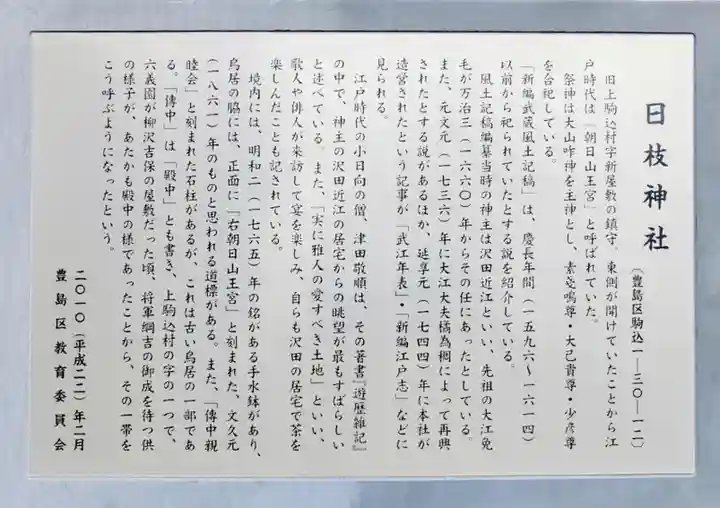 日枝神社
(豊島区駒込一―三〇―一二)
旧上駒込村字新屋敷の鎮守。東側が開けていたことから江
戸時代は「朝日山王宮」と呼ばれていた。
祭神は大山咋神を主神とし、素戔嗚尊・大己貴尊・少彦尊
を合祀している。
「新編武蔵風土記稿」は、慶長年間(一五九六〜一六一四)
以前から祀られていたとする説を紹介している。
風土記稿編纂当時の神主は沢田近江といい、先祖の大江免
毛が万治三(一六六〇)年からその任にあったとしている。
また、元文元(一七三六)年に大江大夫橘為稠によって再興
されたとする説があるほか、延享元(一七四四)年に本社が
造営されたという記事が「武江年表」・「新編江戸志」などに
見られる。
江戸時代の小日向の僧、津田敬順は、その著書『遊歴雑記』
の中で、神主の沢田近江の居宅からの眺望が最もすばらしい
と述べている。また、「実に雅人の愛すべき土地」といい、
歌人や俳人が来訪して宴を楽しみ、自らも沢田の居宅で茶を
楽しんだことも記されている。
境内には、明和二(一七六五)年の銘がある手水鉢があり、
鳥居の脇には、正面に「右朝日山王宮」と刻まれた、文久元
(一八六一)年のものと思われる道標がある。また、「傳中親
睦会」と刻まれた石柱があるが、これは古い鳥居の一部であ
る。「傳中」は「殿中」とも書き、上駒込村の字の一つで、
六義園が柳沢吉保の屋敷だった頃、将軍綱吉の御成を待つ供
の様子が、あたかも殿中の様であったことから、その一帯を
こう呼ぶようになったという。
二〇一〇(平成二二)年二月
豊島区教育委員会